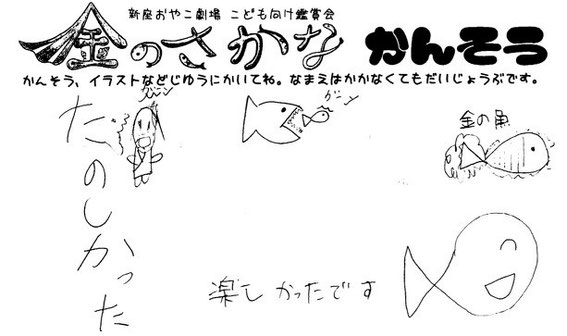 新座おやこ劇場 こども向け鑑賞会
金のさかな かんそう
かんそう、イラストなどじゆうにかいてね。なまえはかかなくてもだいじょうぶです。
たのしかった
金の魚
楽しかったです